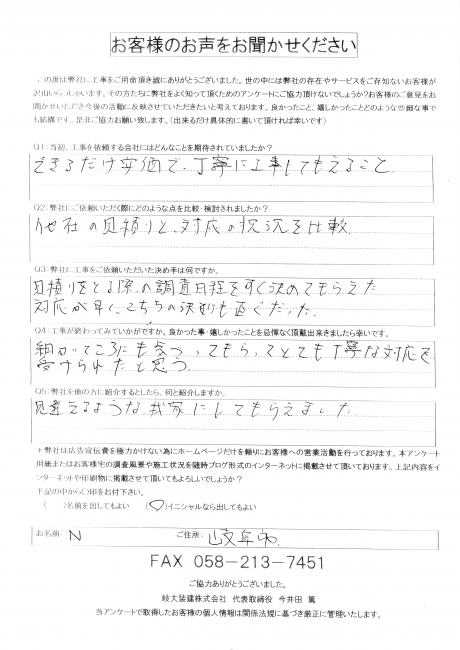 お客様のお声をお聞かせください
この度は弊社に工事をご用命頂き誠にありがとうございました。世の中には弊社の存在やサービスをご存知ないお客様が
沢山いらっしゃいます。その方たちに弊社をよく知って頂くためのアンケートにご協力頂けないでしょうか?お客様のご意見をお
聞かせいただき今後の活動に反映させていただきたいと考えております。良かったこと、嬉しかったことどのような些細な事で
も結構です。是非ご協力お願い致します。(出来るだけ具体的に書いて頂ければ幸いです)
Q1:当初、工事を依頼する会社にはどんなことを期待されていましたか?
できるだけ安価で、丁寧に工事してもらえること
Q2:弊社にご依頼いただく際にどのような点を比較・検討されましたか?
他社の見積りと、対応の状況を比較
Q3:弊社に工事をご依頼いただいた決め手は何ですか。
見積りをとる際の調査日程をすぐ決めてもらえた
対応が早く、こちらの決断も直ぐだった。
Q4:工事が終わってみていかがですか。良かった事・嬉しかったことを忌憚なく頂戴出来きましたら幸いです。
細かいところにも気づいてもらってとても丁寧な対応を
受けられたと思う
Q5:弊社を他の方に紹介するとしたら、何と紹介しますか。
見違えるような我家にしてもらえました
*弊社は広告宣伝費を極力かけない為にホームページだけを頼りにお客様への営業活動を行っております。本アンケート
用紙またはお客様宅の調査風景や施工状況を随時ブログ形式のインターネットに掲載させて頂いております。上記内容をイ
ンターネットや印刷物に掲載させて頂いてもよろしいでしょうか?
下記の中から○印をお付け下さい。
( )名前を出してもよい (○)イニシャルなら出してもよい
お名前: N ご住所: 岐阜市
FAX 058-213-7451
ご協力ありがとうございました。
岐大装建株式会社 代表取締役 今井田 篤
当アンケートで取得したお客様の個人情報は関係法規に基づき厳正に管理いたします。